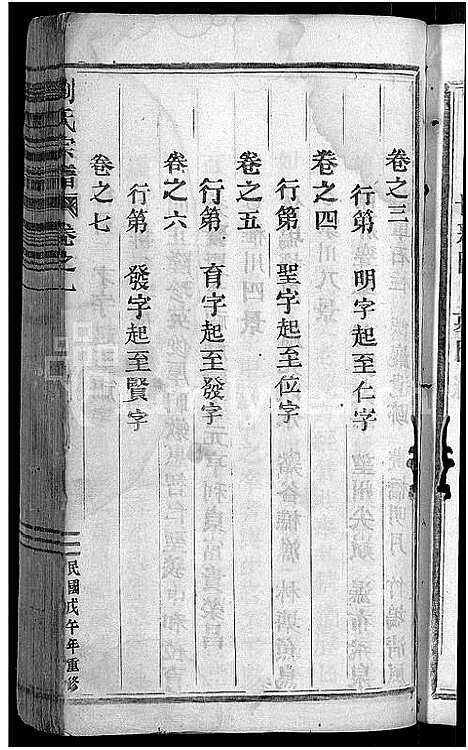 卷之三
行第 明字起至仁字
卷之四
行第 聖字起至位字
卷之五
行第 育字起至發字
卷之六
行第 發字起至賢字
卷之七
劉氏宗譜 卷之一
民國戊午年重修